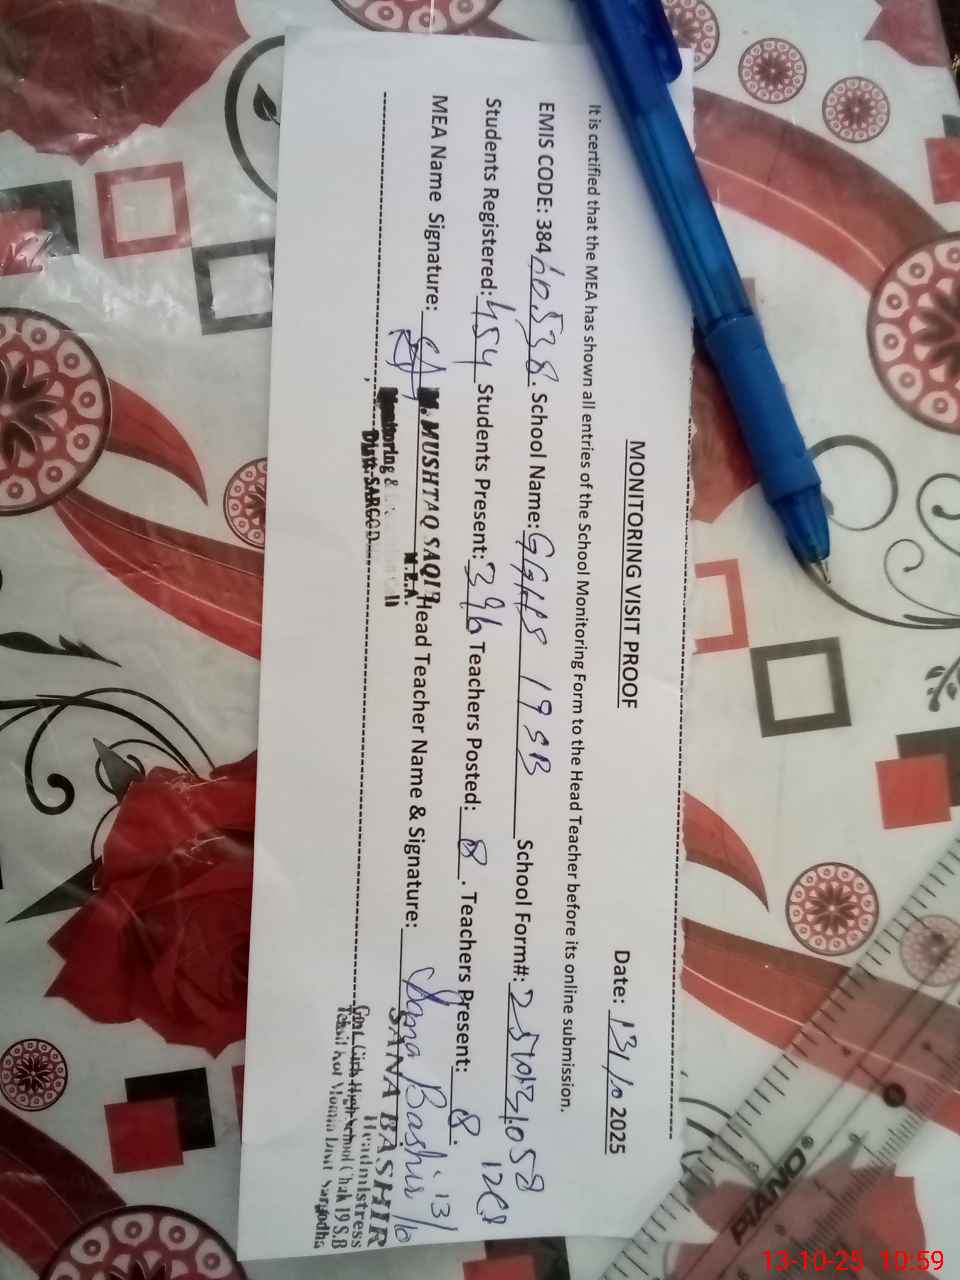 MONITORING VISIT PROOF
Date: 13/10 2025
It is certified that the MEA has shown all entries of the School Monitoring Form to the Head Teacher before its online submission.
EMIS CODE: 38460538. School Name: GGHS 19 SB School Form#:
Students Registered: 454 Students Present: 396 Teachers Posted: 8. Teachers Present: 8.
MEA Name Signature: M. MUSHTAQ SAQIB Head Teacher Name & Signature: Sana Bashir 13/10
M.E.A.
Monitoring &
Distt. SARGOD
SANA BASHIR
Headmistress
Govt. Girls High School Chak 19 S.B
Tehsil Kot Momin Distt Sargodha
PIANO®
13-10-25 10:59